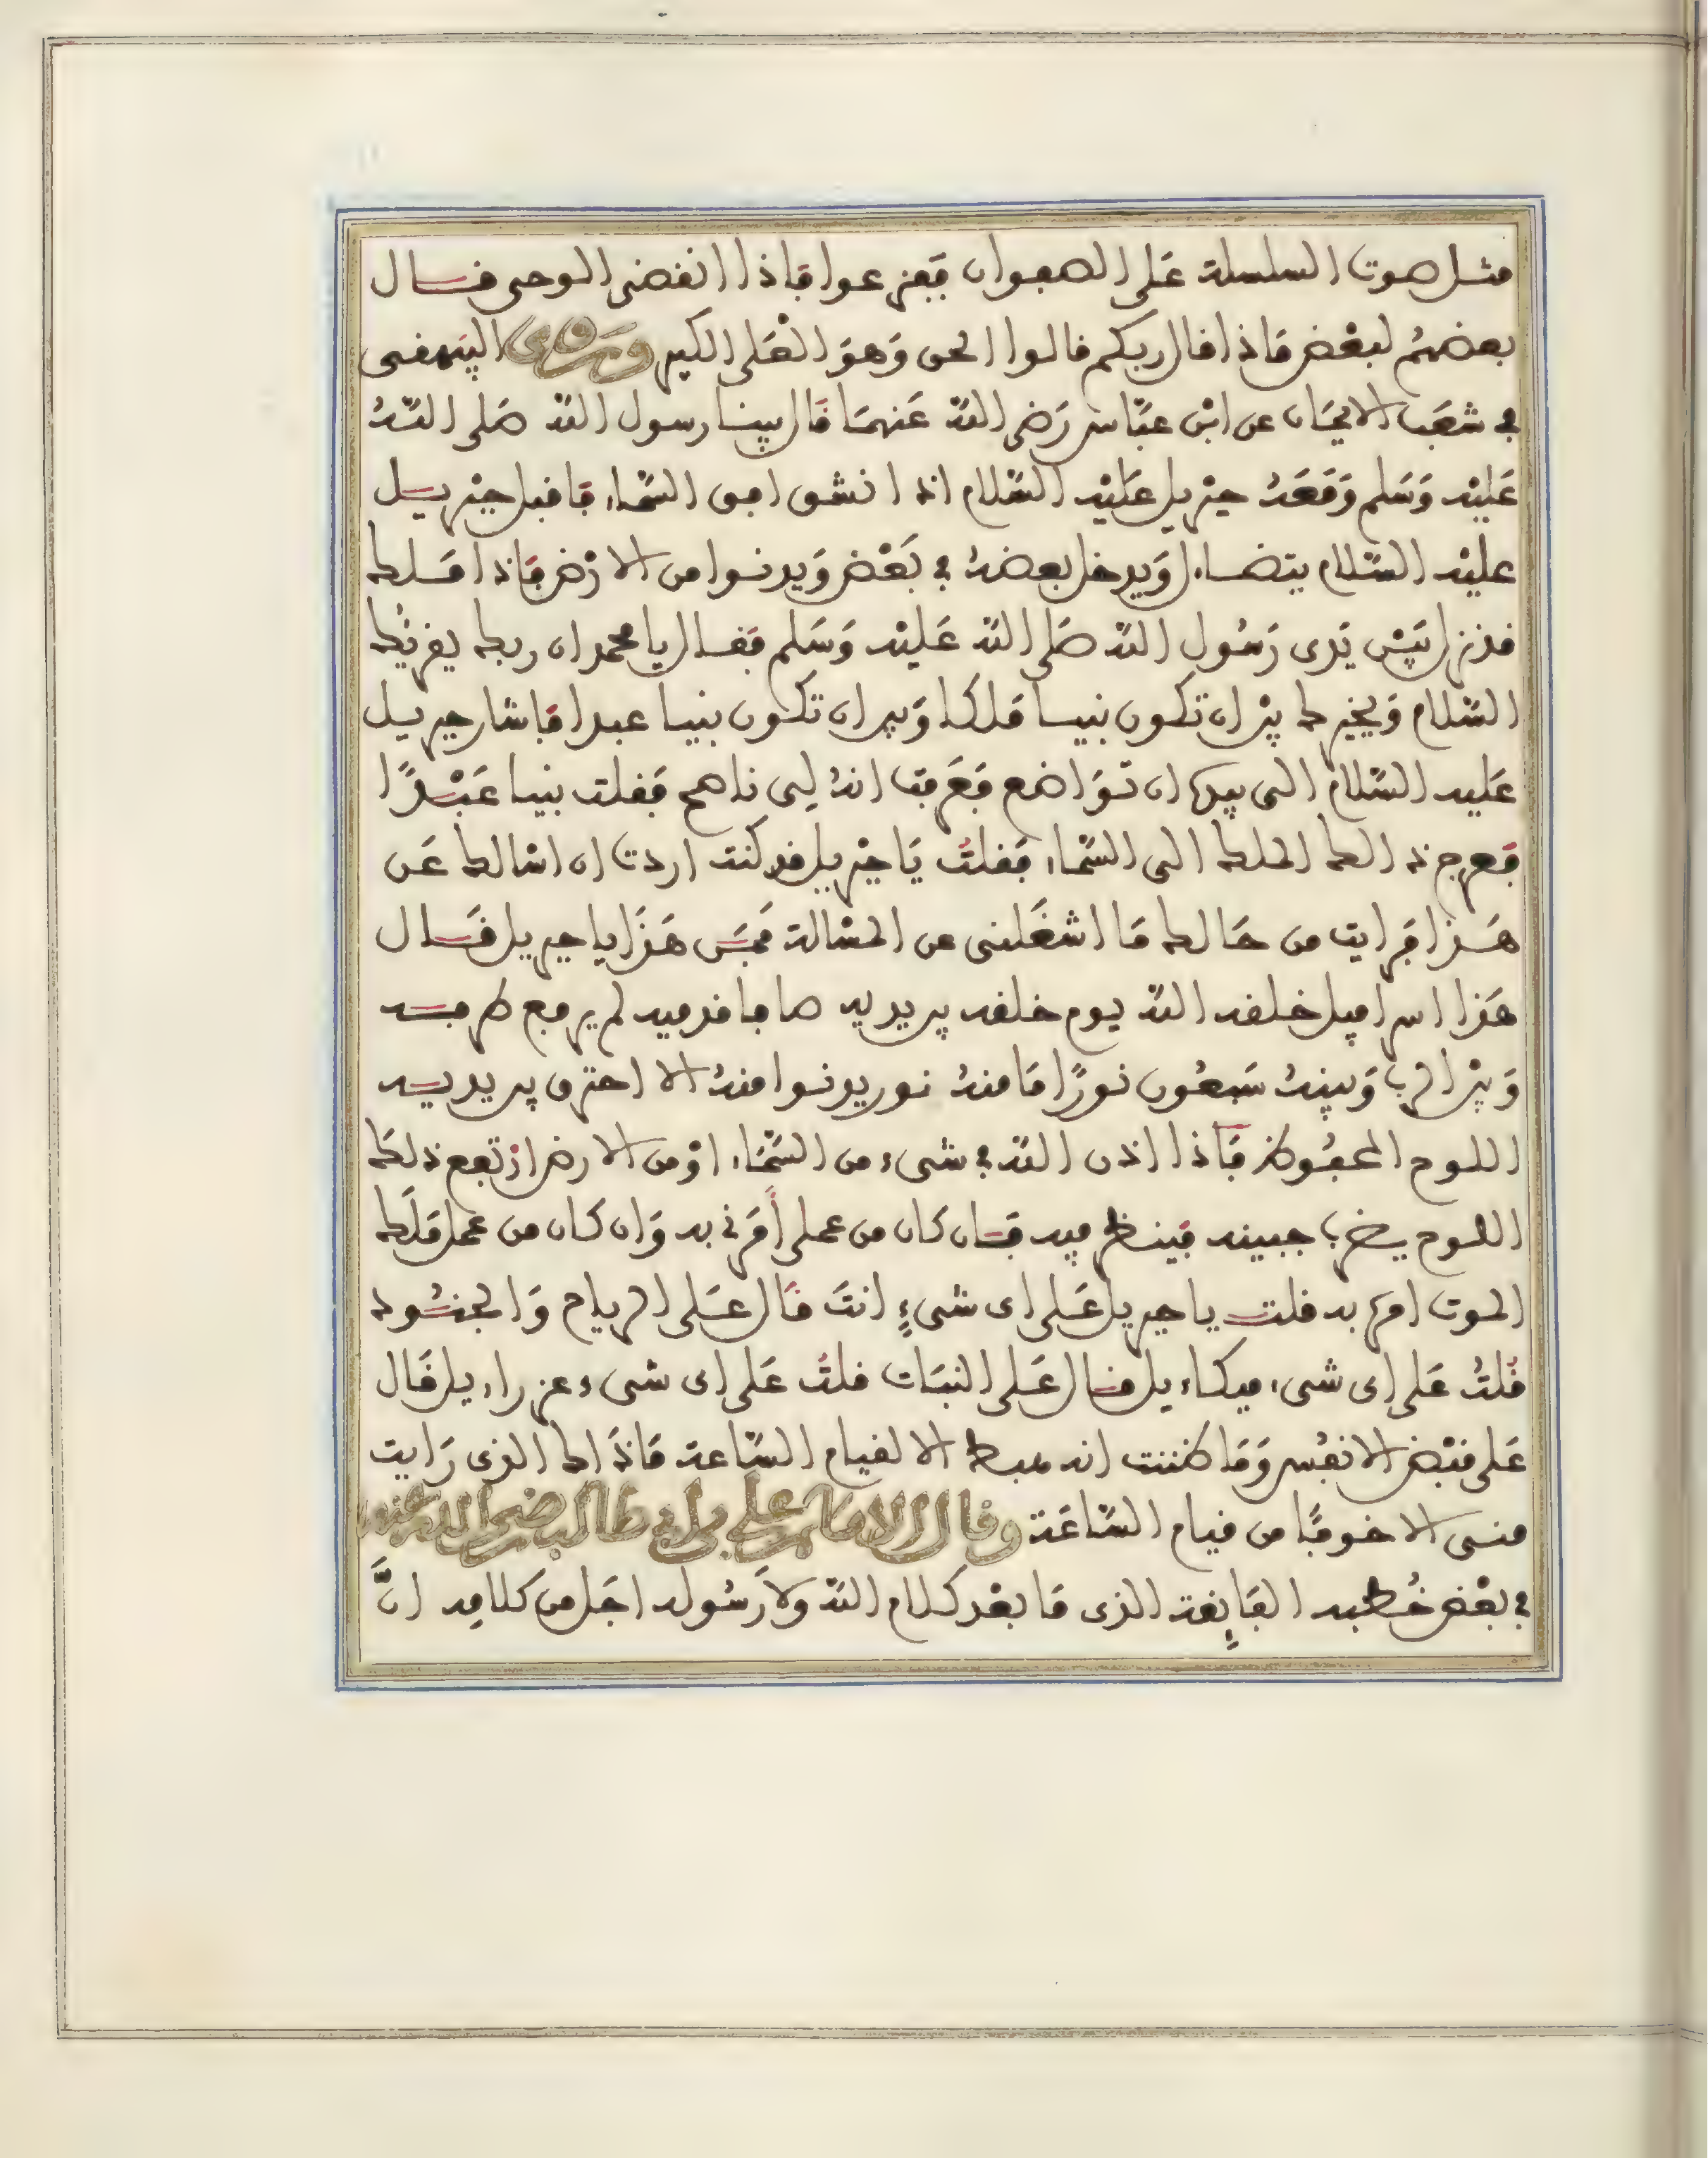 مثل صوت السلسلة على الصفوان فيفزعوا فاذا انقضى الوحى قال
بعضهم لبعض ماذا قال ربكم قالوا الحق وهو العلى الكبير وروى البيهقى
في شعب الايمان عن ابن عباس رضى الله عنهما قال بينا رسول الله صلى الله
عليه وسلم ومعه جبريل عليه السلام اذ انشق افق السماء فاقبل جبريل
عليه السلام يتضاءل ويدخل بعضه في بعض ويدنوا من الارض فاذا ملك
قد نزل بين يدى رسول الله صلى الله عليه وسلم فقال يا محمد ان ربك يقرئك
السلام ويخيرك بين ان تكون نبيا ملكا وبين ان تكون نبيا عبدا فاشار جبريل
عليه السلام الى بيده ان تواضع فعرفت انه لى ناصح فقلت نبيا عبدا
فعرج ذالك الملك الى السماء فقلت يا جبريل قد كنت اردت ان اسالك عن
هذا فرايت من حالك ما اشغلنى عن المسالة فمن هذا يا جبريل قال
هذا اسرافيل خلقه الله يوم خلقه بين يديه صافا قدميه لم يرفع طرفه
وبين الرب وبينه سبعون نورا ما منه نور يدنوا منه الا احترق بين يديه
اللوح المحفوظ فاذا اذن الله في شىء من السماء او من الارض ارتفع ذلك
اللوح يضرب جبينه فينظر فيه فان كان من عملى أمرنى به وان كان من عمل ملك
الموت امره به قلت يا جبريل على اى شىءٍ انت قال على الرياح والجنود
قلت على اى شىء ميكاءيل قال على النبات قلت على اى شىء عزراءيل قال
على قبض الانفس وما ظننت انه هبط الا لقيام الساعة ماذاك الذى رايت
منى الا خوفا من قيام الساعة وقال الامام على بن ابى طالب رضى الله عنه
في بعض خطبه الفايقة الذى ما بعد كلام الله ولا رسوله اجل من كلامه ان